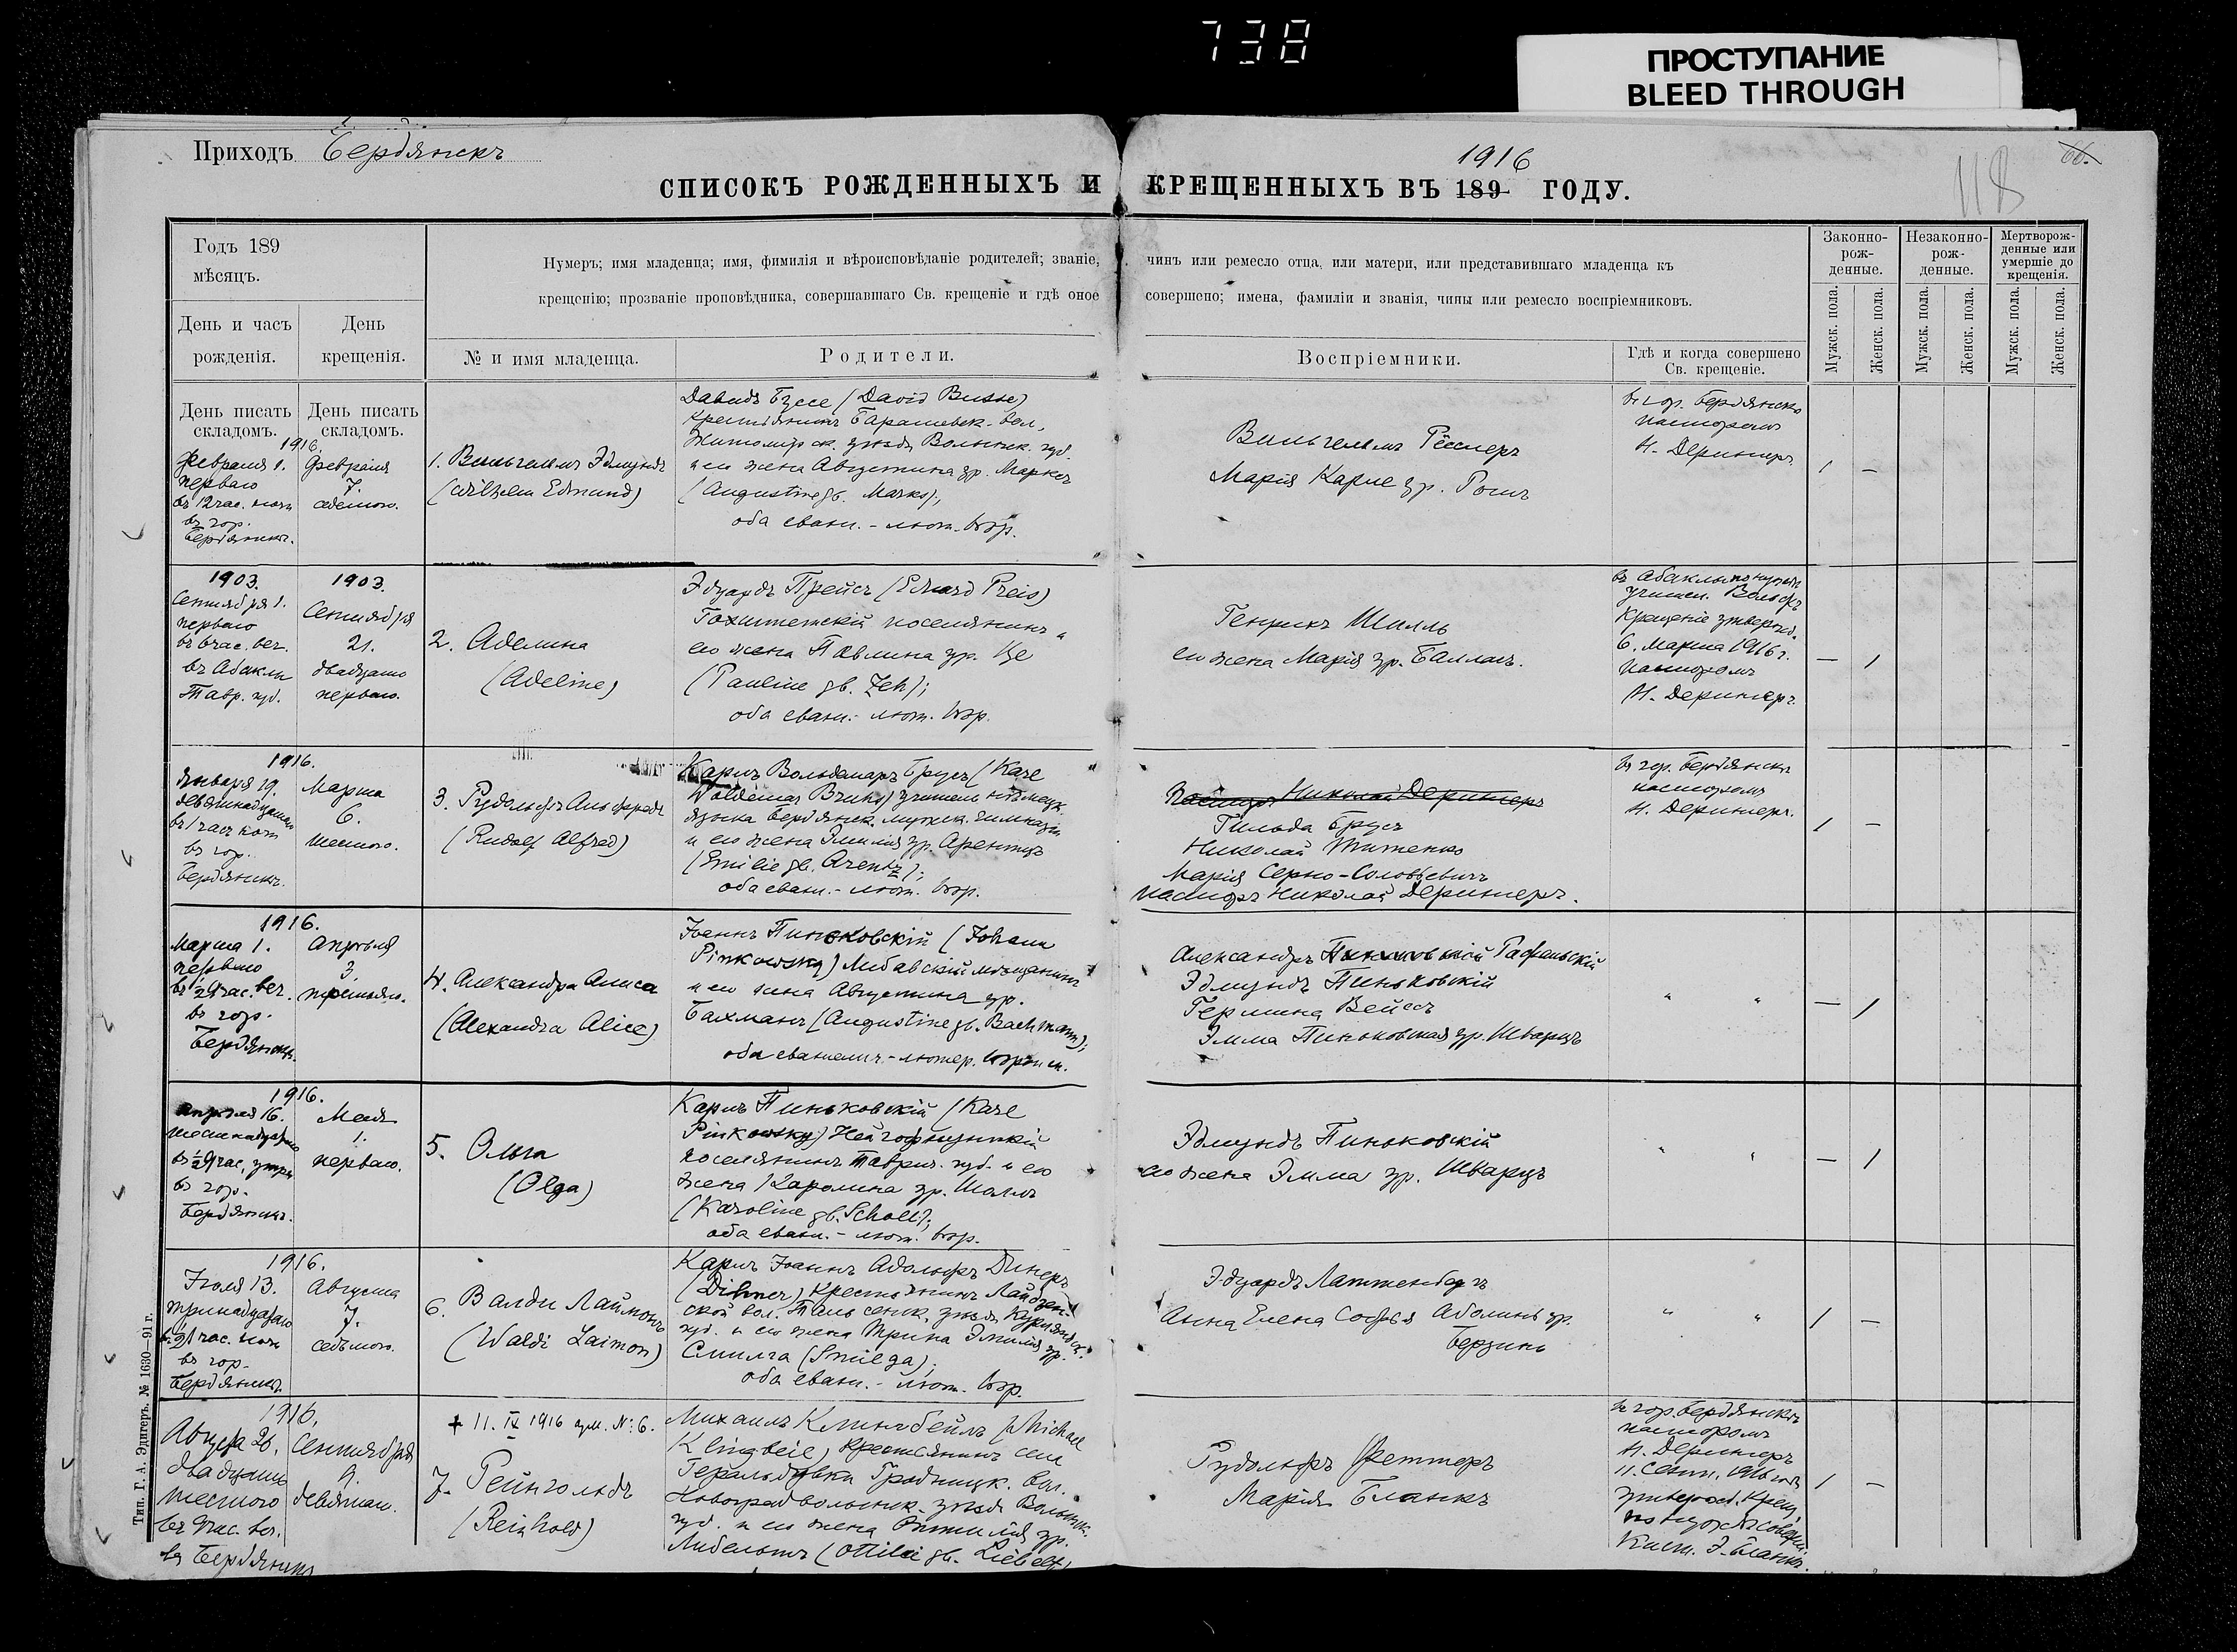 738
ПРОСТУПАНИЕ
BLEED THROUGH
Приходъ Бердянскъ
1916
118
66.
СПИСОКЪ РОЖДЕННЫХЪ И КРЕЩЕННЫХЪ ВЪ 189 ГОДУ.
Годъ 189
мѣсяцъ.
День и часъ
рожденія.
День
крещенія.
Нумеръ; имя младенца; имя, фимилія и вѣроисповѣданіе родителей; званіе, чинъ или ремесло отца, или матери, или представившаго младенца къ
крещенію; прозваніе проповѣдника, совершавшаго Св. крещеніе и гдѣ оное совершено; имена, фамиліи и званія, чины или ремесло воспріемниковъ.
№ и имя младенца.
Родители.
Воспріемники.
Гдѣ и когда совершено
Св. крещеніе.
Законно-
рож-
денные.
Незаконно-
рож-
денные.
Мертворож-
денные или
умершіе до
крещенія.
Мужск. пола.
Женск. пола.
Мужск. пола.
Женск. пола.
Мужск. пола.
Женск. пола.
День писать
складомъ.
День писать
складомъ.
1916.
Февраля 1.
перваго
въ 12 час. ночи
въ гор.
Бердянскѣ.
Февраля
7.
седьмого.
1. Вильгельмъ Эдмундъ
(Wilhelm Edmund)
Давидъ Буссе (David Busse)
крестьянинъ Барашевск. вол.,
Житомірск. уѣзда Волынск. губ.
и его жена Августина ур. Марксъ
(Augustine gb. Marks);
оба еванг.-лют. вѣр.
Вильгельмъ Гесслеръ
Марія Карле ур. Ротъ
въ гор. Бердянскѣ
пасторомъ
Н. Дерингеръ
1 —
1903.
Сентября 1.
перваго
въ 6 час. веч.
въ Абаклы
Тавр. губ.
1903.
Сентября
21.
двадцать
перваго.
2. Аделина
(Adeline)
Эдуардъ Прейсъ (Eduard Preis)
поселянинъ и
его жена Павлина ур. Це
(Pauline gb. Zeh);
оба еванг.-лют. вѣр.
Генрихъ Шилль
его жена Марія ур. Балладъ.
въ Абаклы по нуждѣ
учител. Вольфъ
Крещеніе утвержд.
6. Марта 1916 г.
пасторомъ
Н. Дерингеръ
— 1
1916.
Января 19.
девятнадцатаго
въ 1 час ночи
въ гор.
Бердянскѣ.
Марта
6.
шестого.
3. Рудольфъ Альфредъ
(Rudolf Alfred)
Карлъ Вольдемаръ Брусъ (Karl
Woldemar Bruhs) учитель нѣмецк.
языка Бердянск. мужск. гимназіи
и его жена Эмилія ур. Арентцъ
(Emilie gb. Arentz);
оба еванг.-лют. вѣр.
Пасторъ Николай Дерингеръ
Гильда Брусъ
Николай Титенко
Марія Серно-Соловьевичъ
пасторъ Николай Дерингеръ.
въ гор. Бердянскѣ
пасторомъ
Н. Дерингеръ.
1 —
1916.
Марта 1.
перваго
въ ½9 час. веч.
въ гор.
Бердянскѣ.
Апрѣля
3.
третьяго.
4. Александра Алиса
(Alexandra Alice)
Іоаннъ Пиньковскій (Johann
Pinkowsky) Либавскій мѣщанинъ
и его жена Августина ур.
Бахманъ (Augustine gb. Bachmann);
оба евангелич.-лютер. вѣроисп.
Александръ Рафальскій
Эдмундъ Пиньковскій
Гермина Вейсъ
Эмма Пиньковская ур. Шварцъ
" "
— 1
1916.
Апрѣля 16.
шестнадцатаго
въ ½9 час. утра
въ гор.
Бердянскѣ.
Мая
1.
перваго.
5. Ольга
(Olga)
Карлъ Пиньковскій (Karl
Pinkowsky) Нейгофнунгскій
поселянинъ Таврич. губ. и его
жена Каролина ур. Шолль
(Karoline gb. Scholl);
оба еванг.-лют. вѣр.
Эдмундъ Пиньковскій
его жена Эмма ур. Шварцъ
" "
— 1
1916.
Іюля 13.
тринадцатаго
въ ½1 час. ночи
въ гор.
Бердянскѣ.
Августа
7.
седьмого.
6. Валди Лаймонъ
(Waldi Laimon)
Карлъ Іоаннъ Адольфъ Динеръ
(Dihner) крестьянинъ Лайдзен-
ской вол. Тальсенск. уѣзда Курляндск.
губ. и его жена Трина Эмилія ур.
Смилга (Smilga);
оба еванг.-лют. вѣр.
Эдуардъ Латтенбергъ
Анна Елена Софья Аболинь ур.
Берзинь
" "
1 —
1916.
Августа 26.
двадцать
шестого
въ 9 час. веч.
въ Бердянскѣ
Сентября
9.
девятаго.
+ 11. IX 1916 ум. №: 6.
7. Рейнгольдъ
(Reinhold)
Михаилъ Клингбейлъ (Michael
Klingbeil) крестьянинъ села
Геральдовки Гродницк. вол.
Новоградволынск. уѣзда Волынск.
губ. и его жена Оттилія ур.
Либельтъ (Ottilie gb. Liebelt)
Рудольфъ Феттеръ
Марія Бланкъ
въ гор. Бердянскѣ
пасторомъ
Н. Дерингеръ
11. Сент. 1916 года
утвержд. Крещ.
по нуждѣ соверш.
Кист. Э. Бланкъ.
1 —
Тип. Г. А. Эдигеръ. № 1630—91 г.